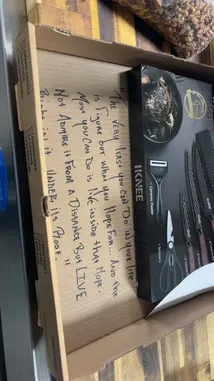 "THE VERY LEAST YOU CAN DO IN YOUR LIFE
is FIGURE OUT WHAT YOU HOPE FOR... AND THE
MOST YOU CAN DO IS LIVE INSIDE THAT HOPE.
NOT ADMIRE IT FROM A DISTANCE BUT LIVE
RIGHT IN IT UNDER ITS ROOF."
IKNEE
Ceramic Peeler